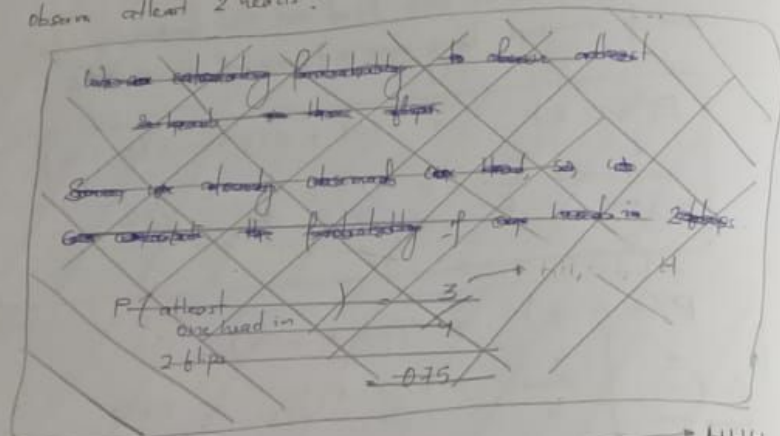 observe atleast 2 heads.
We are calculating probability to observe atleast
2 heads in three flips.
Since, we already observed one Head, so, we
can calculate the probability of one heads in 2 flips
P ( atleast ) = 3
one head in 4
2 flips
= 0.75